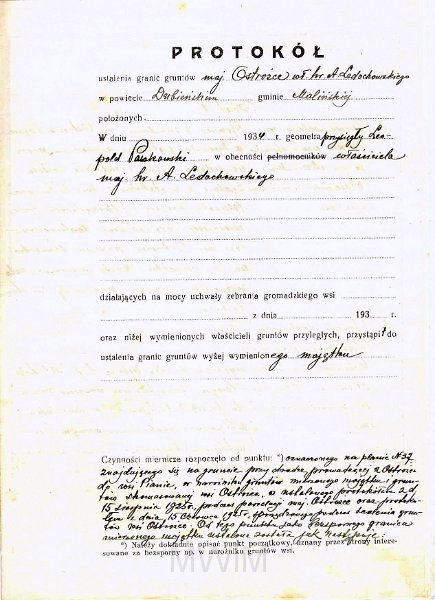 PROTOKÓŁ
ustalenia granic gruntów maj. Ostrożce wł. hr. A. Ledochowskiego
w powiecie Dubieńskim gminie Malińskiej
położonych
W dniu 1934 r. geometra przysięgły Leo-
pold Paszkowski w obecności pełnomocników właściciela
maj. hr. A. Ledochowskiego
działających na mocy uchwały zebrania gromadzkiego wsi
z dnia 193 r.
oraz niżej wymienionych właścicieli gruntów przyległych, przystąpił do
ustalenia granic gruntów wyżej wymienionego majątku
Czynności miernicze rozpoczęto od punktu: *) oznaczonego na planie N 37
znajdującego się na gruncie przy drodze, prowadzącej z Ostrożca
do wsi Pianie, w narożniku gruntów mierzonego majątku i grun-
tów skomasowanej wsi Ostrożce, a ustalonego protokółem z d.
15 sierpnia 1925 r. podczas parcelacji maj. Ostrożce oraz protokó-
łem z dnia 15 1925 r. sporządzonego podczas scalenia grun-
tów wsi Ostrożce. Od tego punktu jako bezspornego granica
mierzonego majątku ustalona została jak następuje:
*) Należy dokładnie opisać punkt początkowy, uznany przez strony intere-
sowane za bezsporny np. w narożniku gruntów wsi.
MWIM